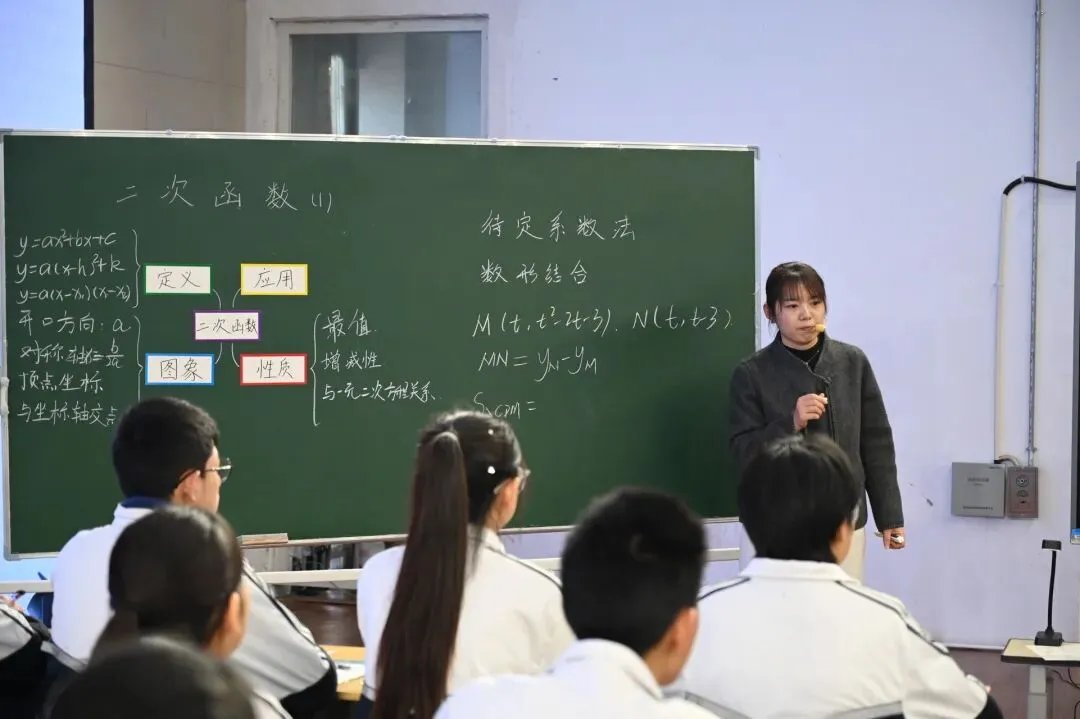 二次函数(1)
y=ax²+bx+c
y=a(x-h)²+k
y=a(x-x₁)(x-x₂)
开口方向:a
对称轴x=
顶点坐标
与坐标轴交点
定义
应用
二次函数
图象
性质
最值
增减性
与一元二次方程关系.
待定系数法
数形结合
M(t, t²-2t-3). N(t, t-3)
MN = yN-yM